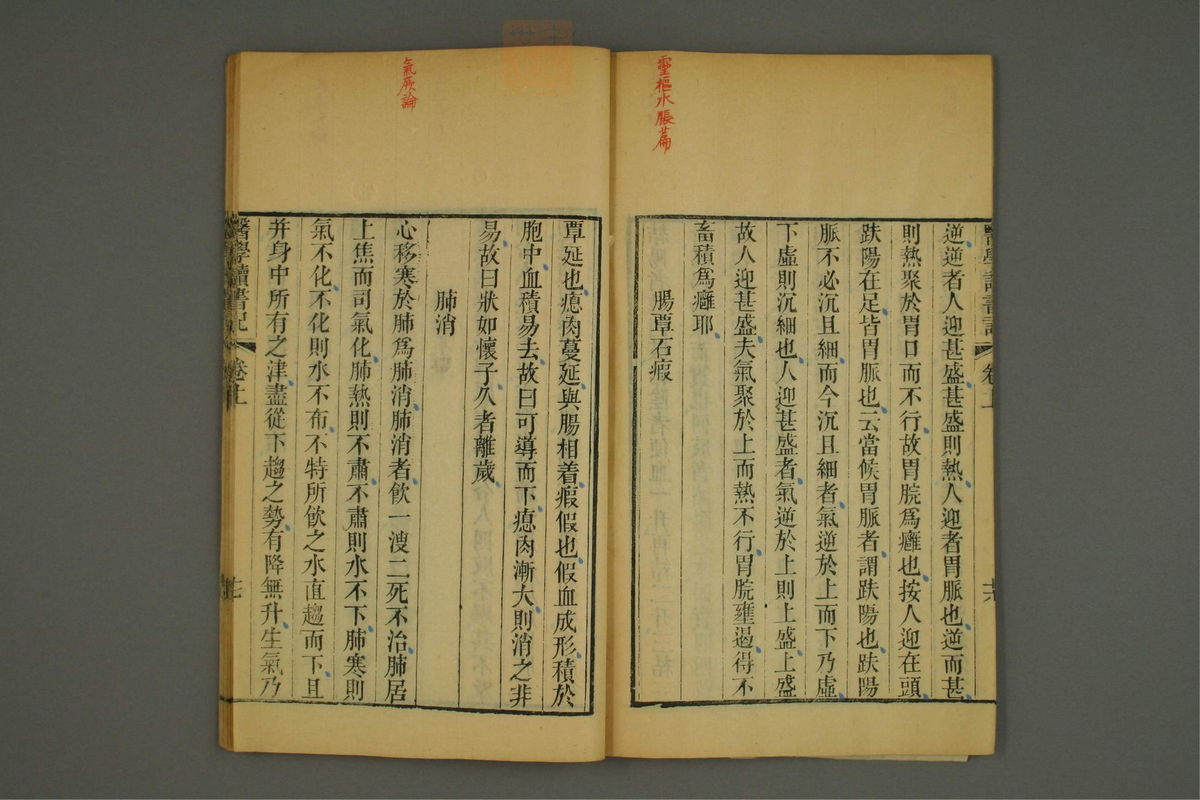 靈樞水脹篇
逆逆者人迎甚盛甚盛則熱人迎者胃脈也逆而甚
則熱聚於胃口而不行故胃脘爲癰也按人迎在頭
趺陽在足皆胃脈也云當候胃脈者謂趺陽也趺陽
脈不必沉且細而今沉且細者氣逆於上而下乃虛
下虛則沉細也人迎甚盛者氣逆於上則上盛上盛
故人迎甚盛夫氣聚於上而熱不行胃脘壅遏得不
畜積爲癰耶
腸覃石瘕
氣厥論
覃延也瘜肉蔓延與腸相着瘕假也假血成形積於
胞中血積易去故曰可導而下瘜肉漸大則消之非
易故曰狀如懷子久者離歲
肺消
心移寒於肺爲肺消肺消者飲一溲二死不治肺居
上焦而司氣化肺熱則不肅不肅則水不下肺寒則
氣不化不化則水不布不特所飲之水直趨而下且
并身中所有之津盡從下趨之勢有降無升生氣乃
醫學讀書記 卷上